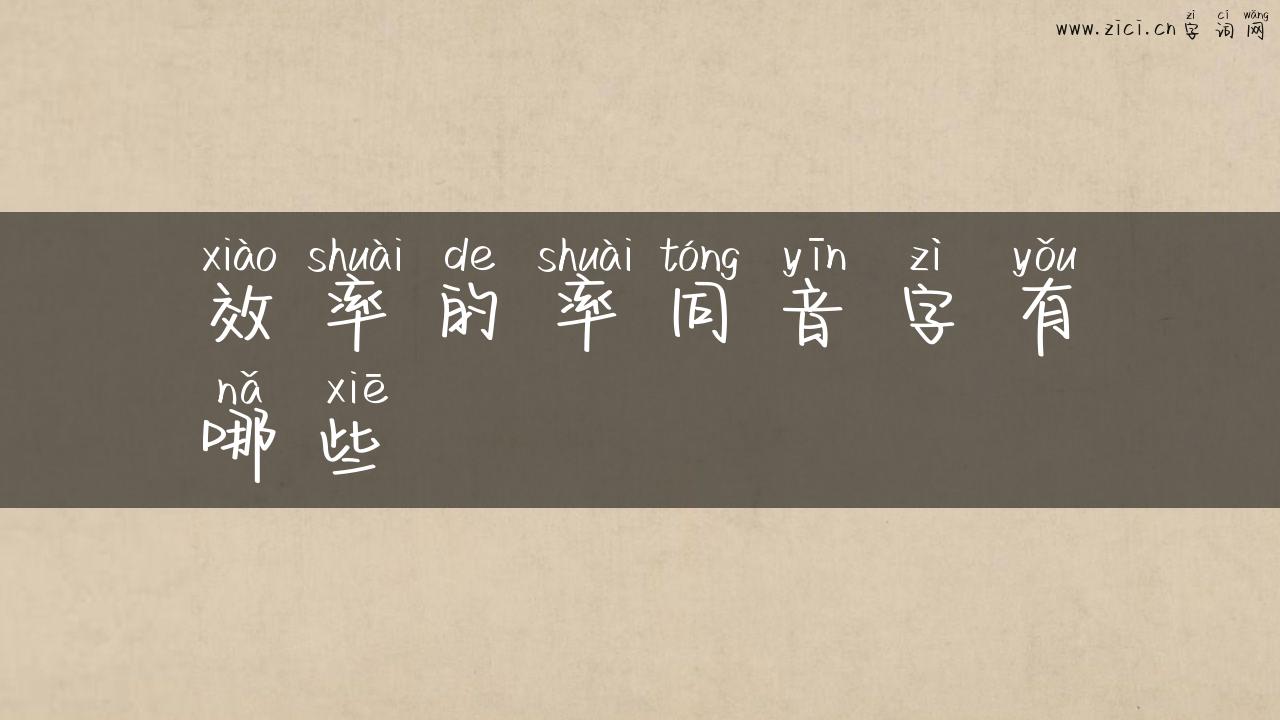 zì cí wǎng
www.zici.cn 字词网
xiào shuài de shuài tóng yīn zì yǒu
效率的率同音字有
nǎ xiē
哪些